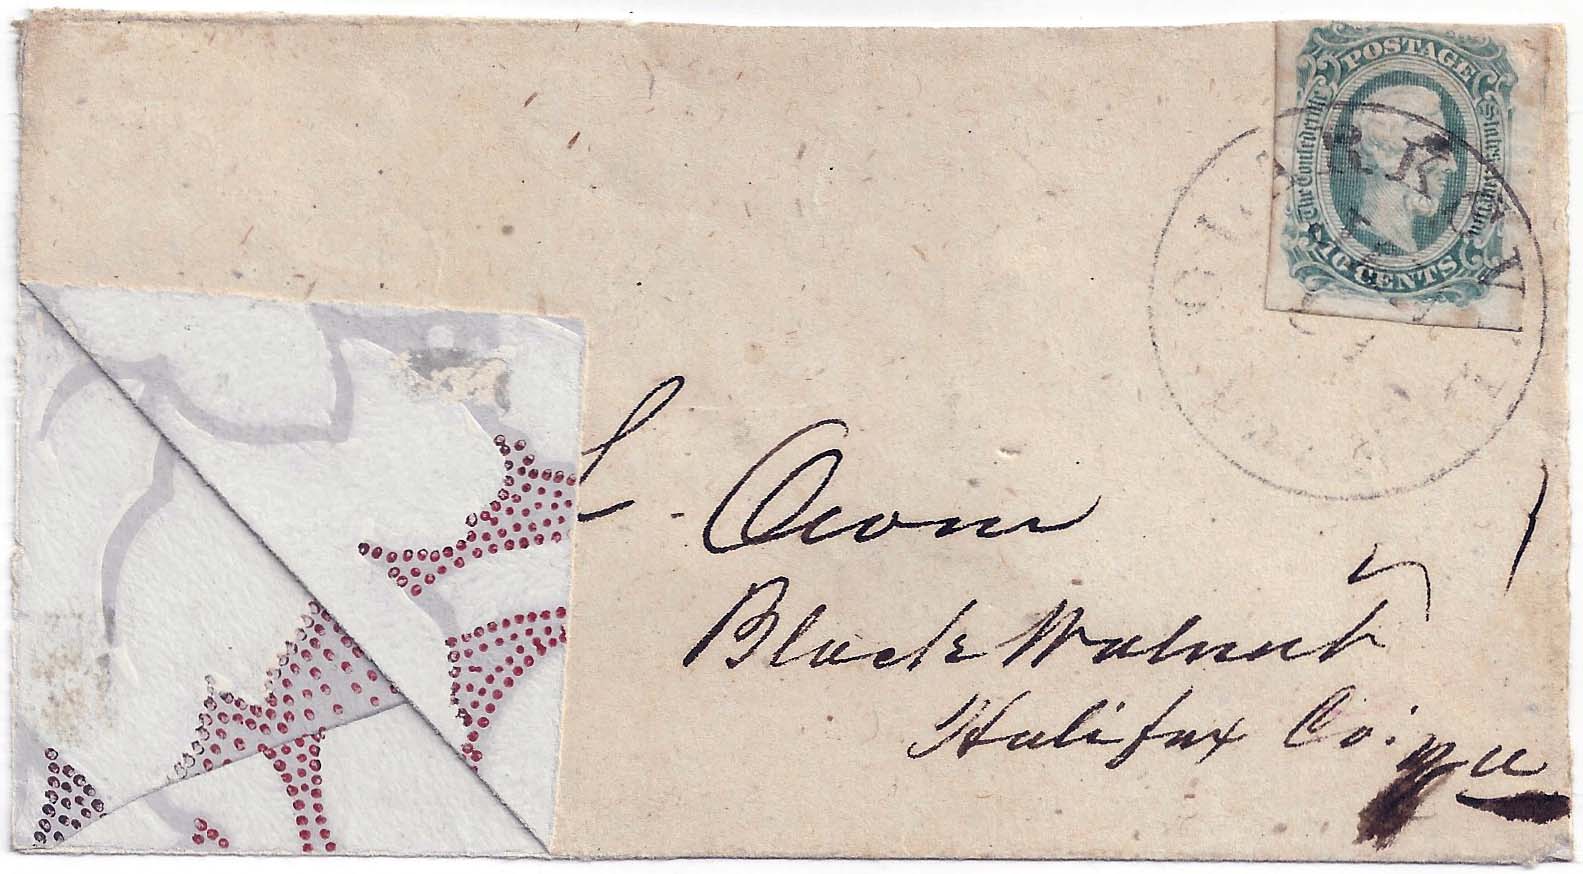 POSTAGE
The Confederate States of America
10 CENTS
CLARKSVILLE
L. Owen
Black Walnut
Halifax Co. Va